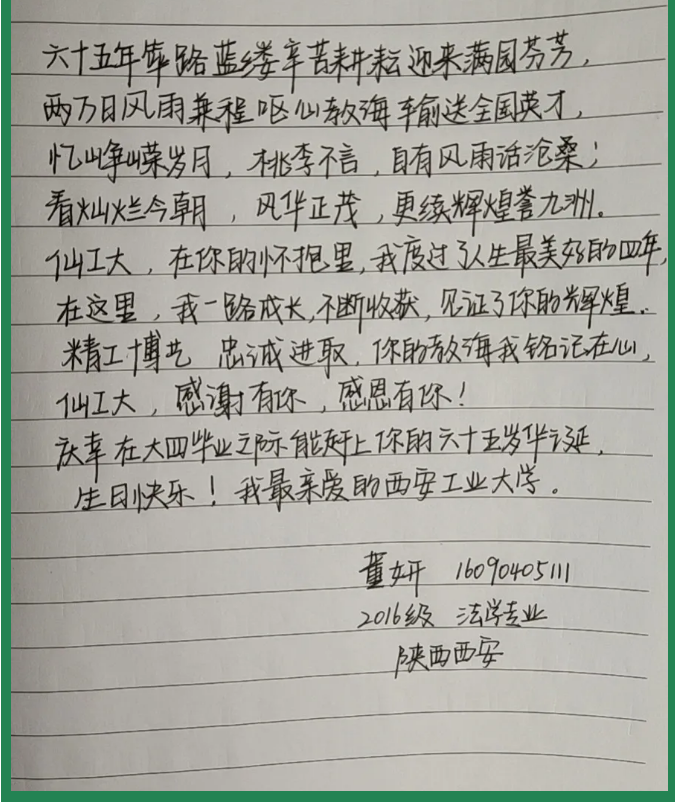 六十五年筚路蓝缕辛苦耕耘迎来满园芬芳，
两万日风雨兼程呕心教诲输送全国英才，
忆峥嵘岁月，桃李不言，自有风雨话沧桑；
看灿烂今朝，风华正茂，更续辉煌誉九洲。
仙工大，在你的怀抱里，我度过了人生最美好的四年，
在这里，我一路成长，不断收获，见证了你的辉煌.
精工博艺 忠诚进取，你的教诲我铭记在心，
仙工大，感谢有你，感恩有你！
庆幸在大四毕业之际能赶上你的六十五岁华诞，
生日快乐！我最亲爱的西安工业大学。
董妍 16090405111
2016级 法学专业
陕西西安